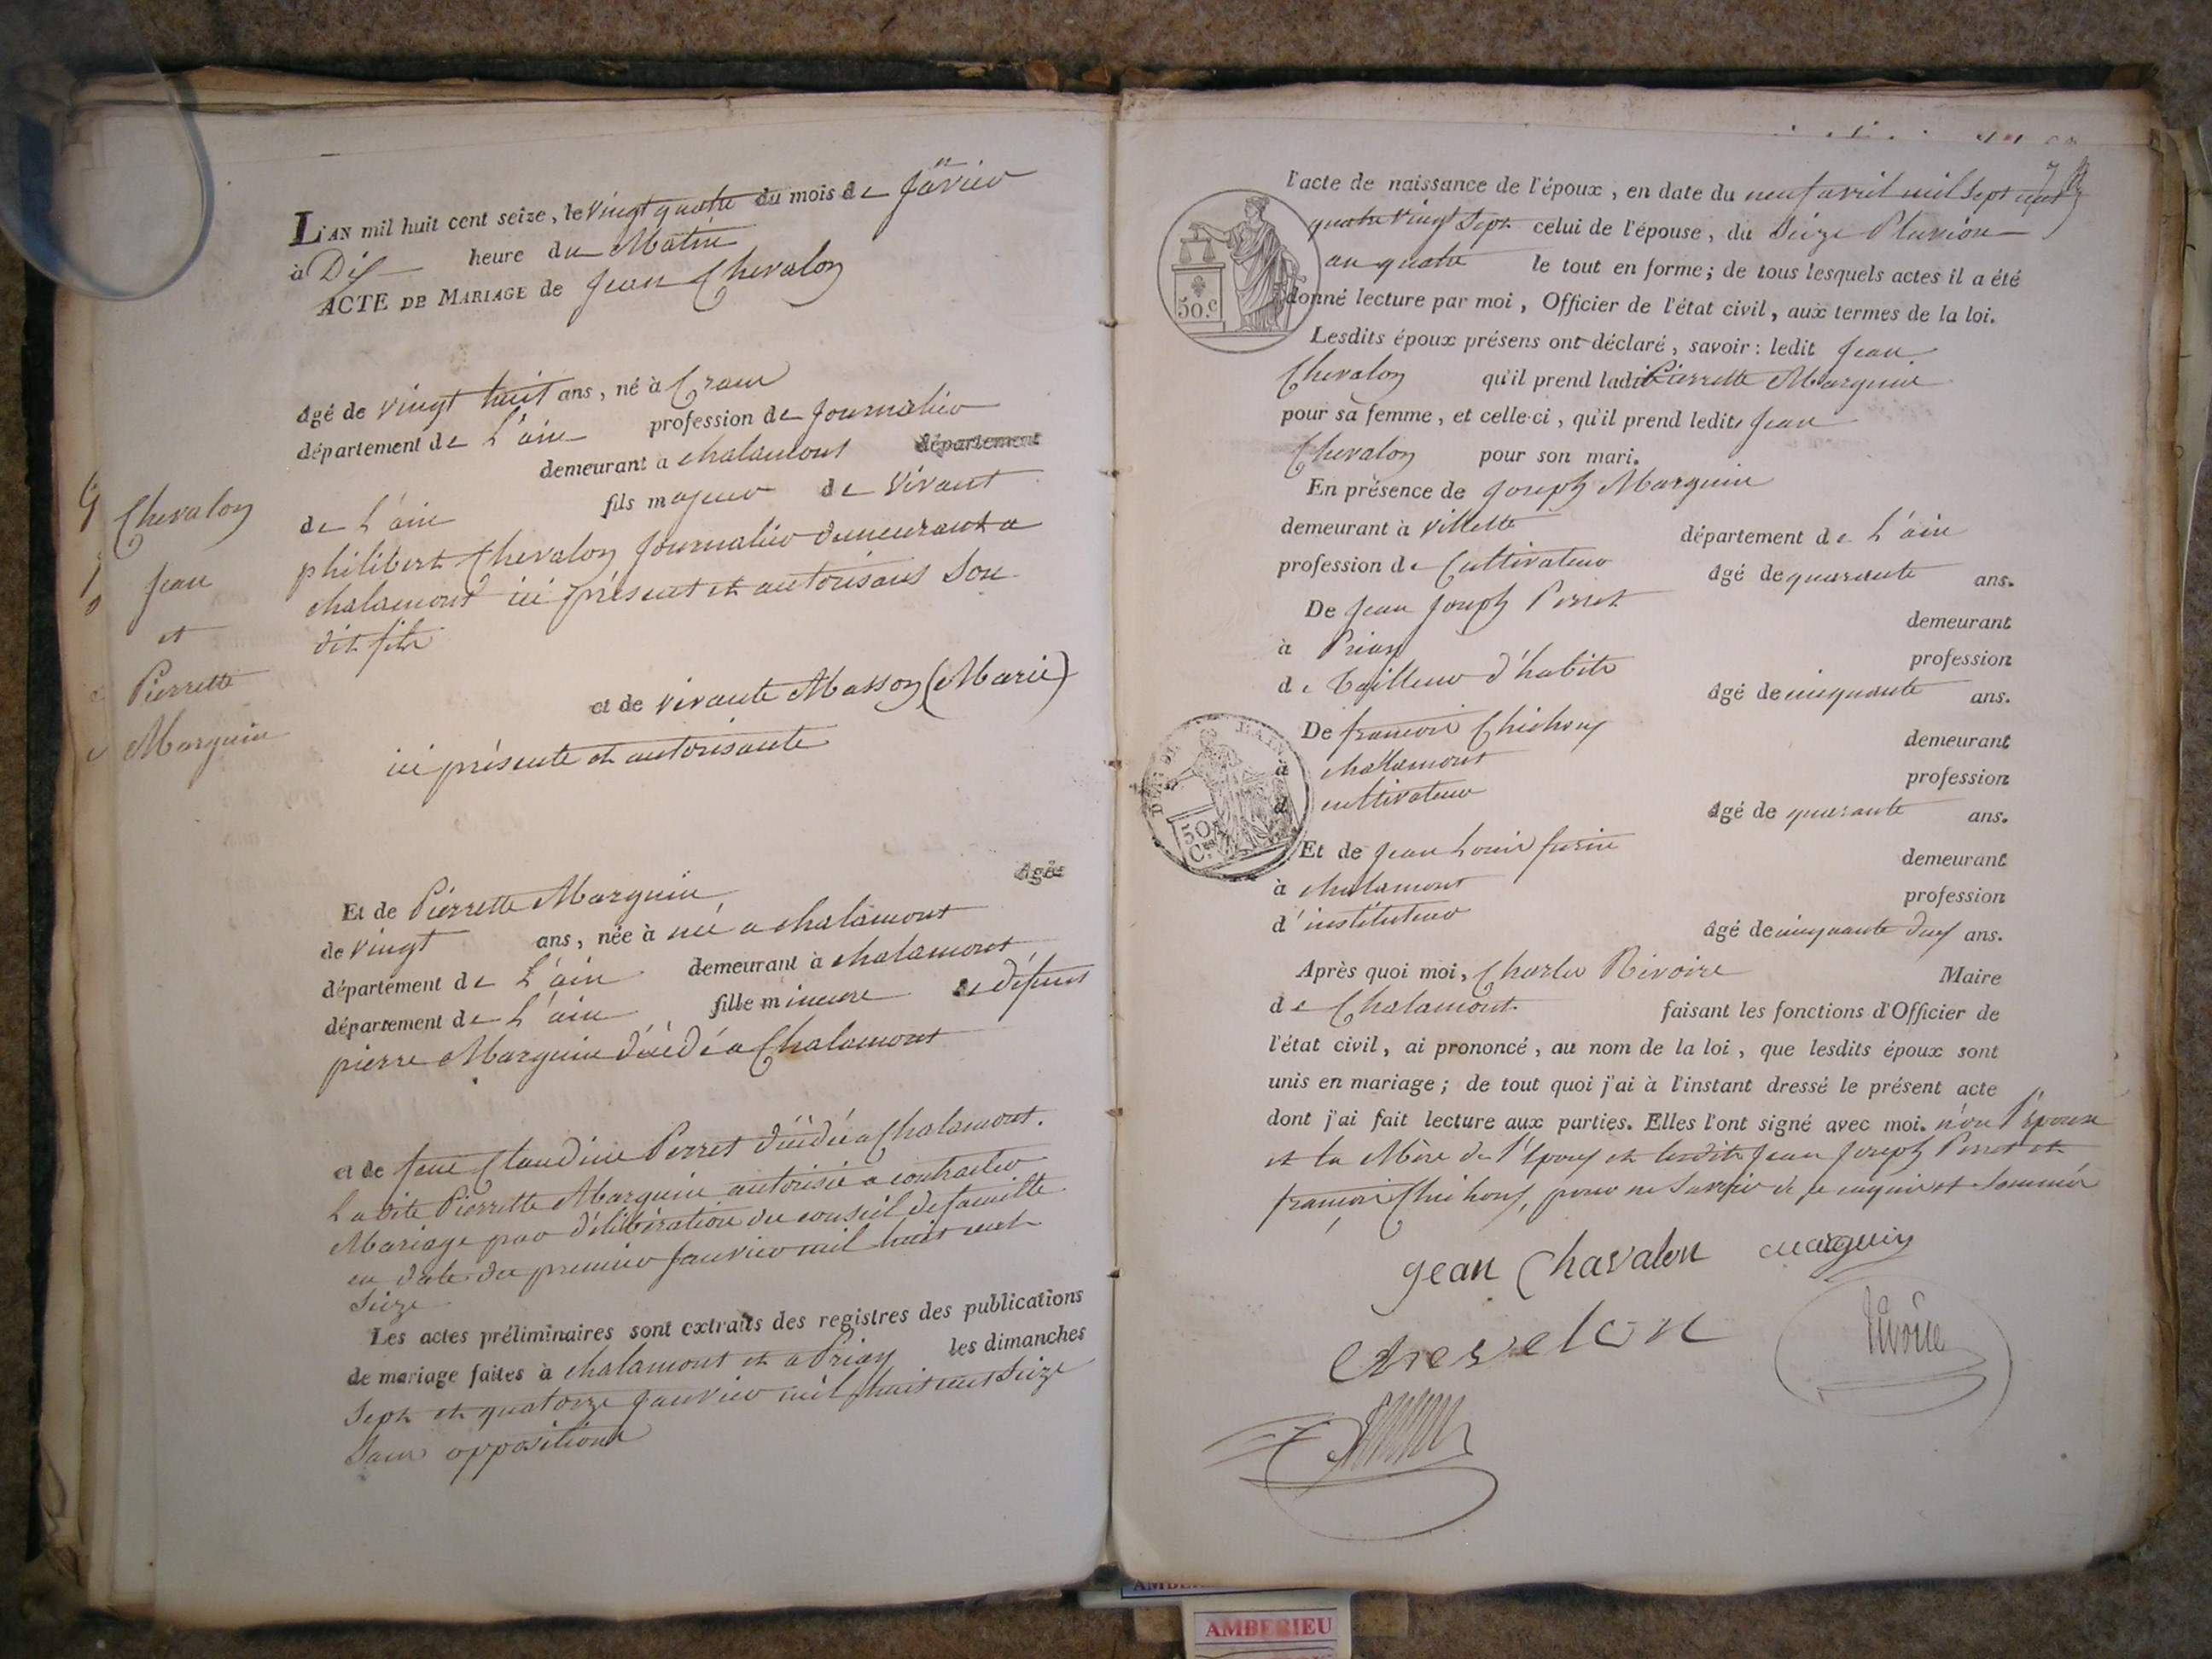 Chevalon
Jean
et
Pierrette
Marguin
L'AN mil huit cent seize, le vingt quatre du mois de Janvier
à Dix heure du Matin
ACTE DE MARIAGE de Jean Chevalon
âgé de vingt huit ans, né à Crans
département de L'ain profession de Journalier
demeurant à chalamont département
de L'ain fils majeur de vivant
philibert Chevalon Journalier demeurant a
chalamont ici présent et autorisant Son
dit fils
et de vivante Masson (Marie)
ici présente et autorisante
Et de Pierrette Marguin âgée
de vingt ans, née à née a chalamont
département de L'ain demeurant à chalamont
département de L'ain fille mineure de défunt
pierre Marguin décédé a Chalamont
et de feue Claudine Perret décédée a Chalamont.
Ladite Pierrette Marguin autorisée a contracter
Mariage par délibération du conseil de famille
en date du premier Janvier mil huit cent
Seize
Les actes préliminaires sont extraits des registres des publications
de mariage faites à chalamont et a Priay les dimanches
Sept et quatorze Janvier mil huit cent Seize
Sans opposition
l'acte de naissance de l'époux, en date du neuf avril mil Sept cent
quatre vingt Sept celui de l'épouse, du Seize Pluviose
an quatre le tout en forme; de tous lesquels actes il a été
donné lecture par moi, Officier de l'état civil, aux termes de la loi.
50.c
Lesdits époux présens ont déclaré, savoir: ledit Jean
Chevalon qu'il prend ladite Pierrette Marguin
pour sa femme, et celle-ci, qu'il prend ledit Jean
Chevalon pour son mari.
En présence de Joseph Marguin
demeurant à Villette département de L'ain
profession de Cultivateur âgé de quarante ans.
De Jean Joseph Perret demeurant
à Priay profession
de Tailleur d'habits âgé de cinquante ans.
De françois Chichoux demeurant
à chalamont profession
de cultivateur âgé de quarante ans.
50
Cen
Et de Jean Louis demeurant
à chalamont profession
d'instituteur âgé de cinquante deux ans.
Après quoi moi, Charles Rivoire Maire
de Chalamont faisant les fonctions d'Officier de
l'état civil, ai prononcé, au nom de la loi, que lesdits époux sont
unis en mariage; de tout quoi j'ai à l'instant dressé le présent acte
dont j'ai fait lecture aux parties. Elles l'ont signé avec moi. non l'épouse
et la Mère de l'Epoux et lesdits Jean Joseph Perret et
françois Chichoux, pour ne Savoir de ce enquis et Sommés
jean Chavalon marguin
chevelon Rivoire
AMBERIEU